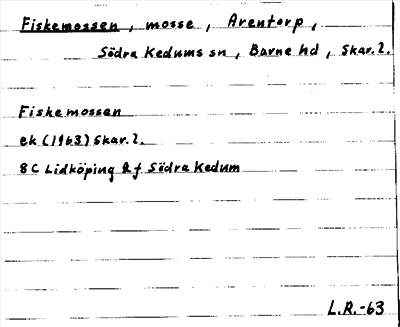 Fiskemossen, mosse, Arentorp,
Södra Kedums sn, Barne hd, Skar.l.
Fiskemossen
ek (1963) Skar.l.
8C Lidköping 2f Södra Kedum
L.R.-63